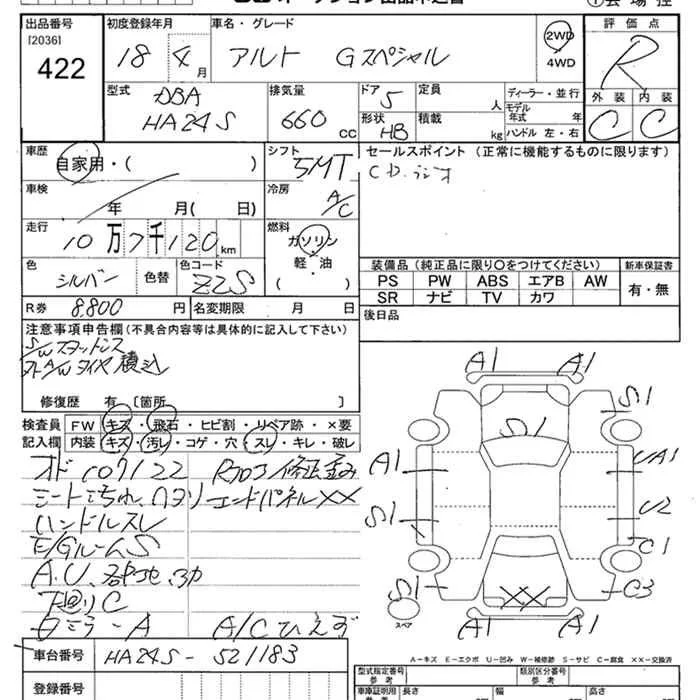 オークション出品申込書
出品番号 初度登録年月 車名・グレード 評価点
[2036]
422
18 4月 アルト Gスペシャル 2WD
4WD
R
型式 DBA
HA24S
排気量 660cc
ドア 5
形状 HB
定員 人
積載 kg
ディーラー・並行
モデル年式 年
ハンドル 左・右
外装 内装
C C
車歴 自家用・( )
シフト 5MT
セールスポイント (正常に機能するものに限ります)
CD.ラジオ
車検 年 月( 日)
冷房 A/C
走行 10万7千120km
燃料 ガソリン
軽・油
( )
色 シルバー 色替 色コード ZZS
装備品 (純正品に限り○をつけてください) 新車保証書
PS PW ABS エアB AW
SR ナビ TV カワ
有・無
R券 8,800円 名変期限 月 日
後日品
注意事項申告欄(不具合内容等は具体的に記入して下さい)
S/Wスタッドレス
A/Wタイヤ積込
修復歴 有 [箇所
検査員 FW キズ・飛石・ヒビ割・リペア跡・×要
記入欄 内装 キズ・汚レ・コゲ・穴・スレ・キレ・破レ
オド107122
シート汚れ、ヘタリ エンドパネル××
ハンドルスレ
E/GルームS
下回りC
A/C ひえず
車台番号 HA24S-521183
登録番号
A1 A1
S1
S1
A1 UA1
S1 U2
C1
S1 ×× C3
スペア
A1 A1
A-キズ E-エクボ U-凹み W-補修跡 S-サビ C-腐食 ××-交換済
型式指定番号 参考 類別区分番号 参考
車庫証明用 参考 長さ 幅 高さ